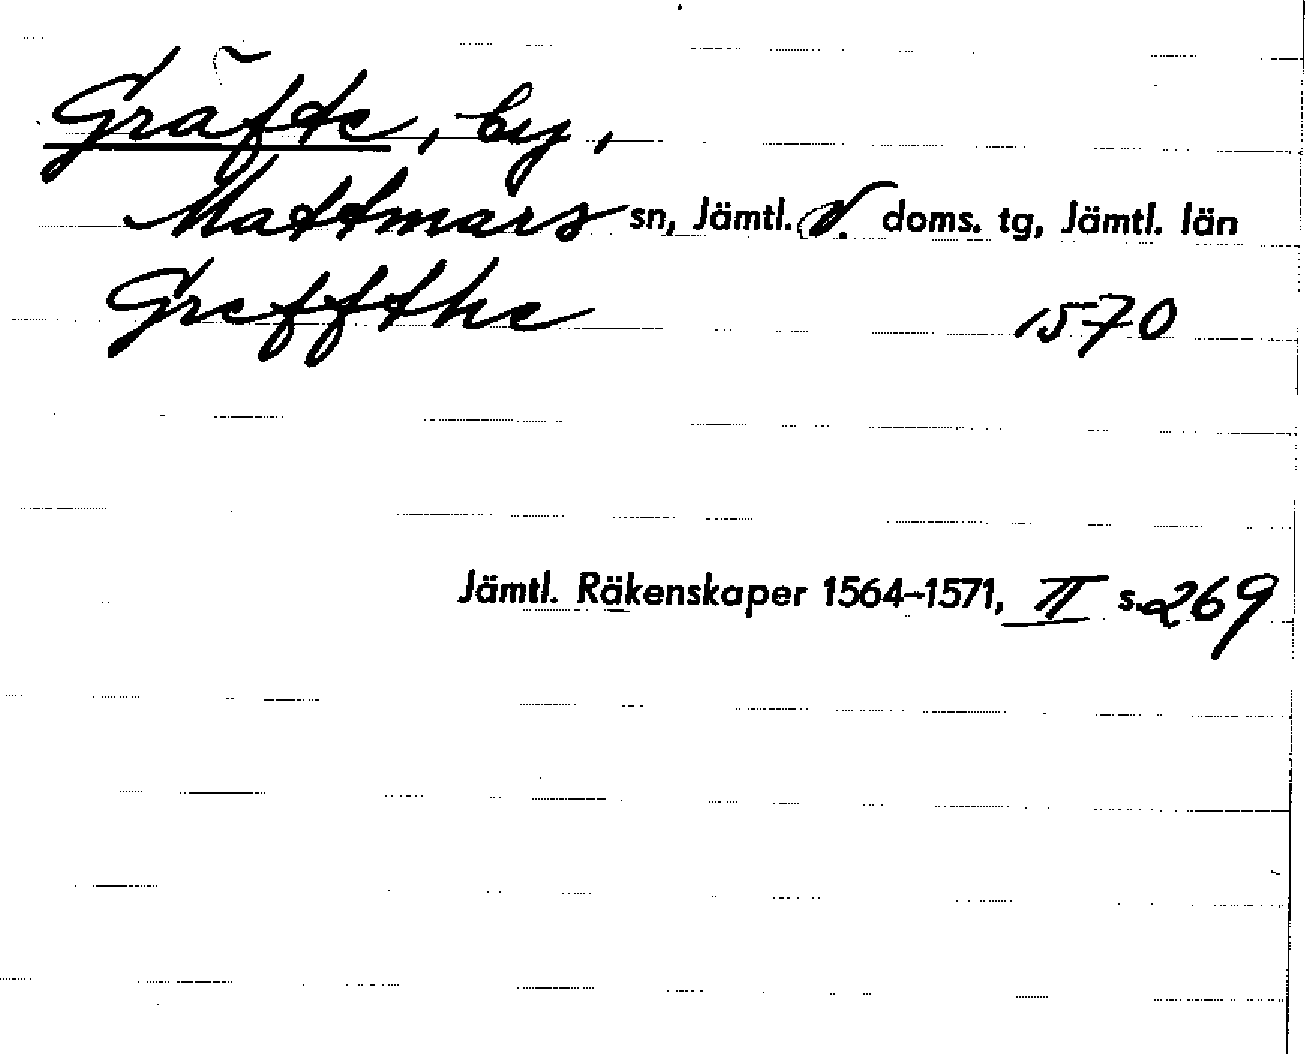 Gräfte, by,
Mattmars sn, Jämtl. v. doms. tg, Jämtl. län
Greffthe 1570
Jämtl. Räkenskaper 1564-1571, II s. 269